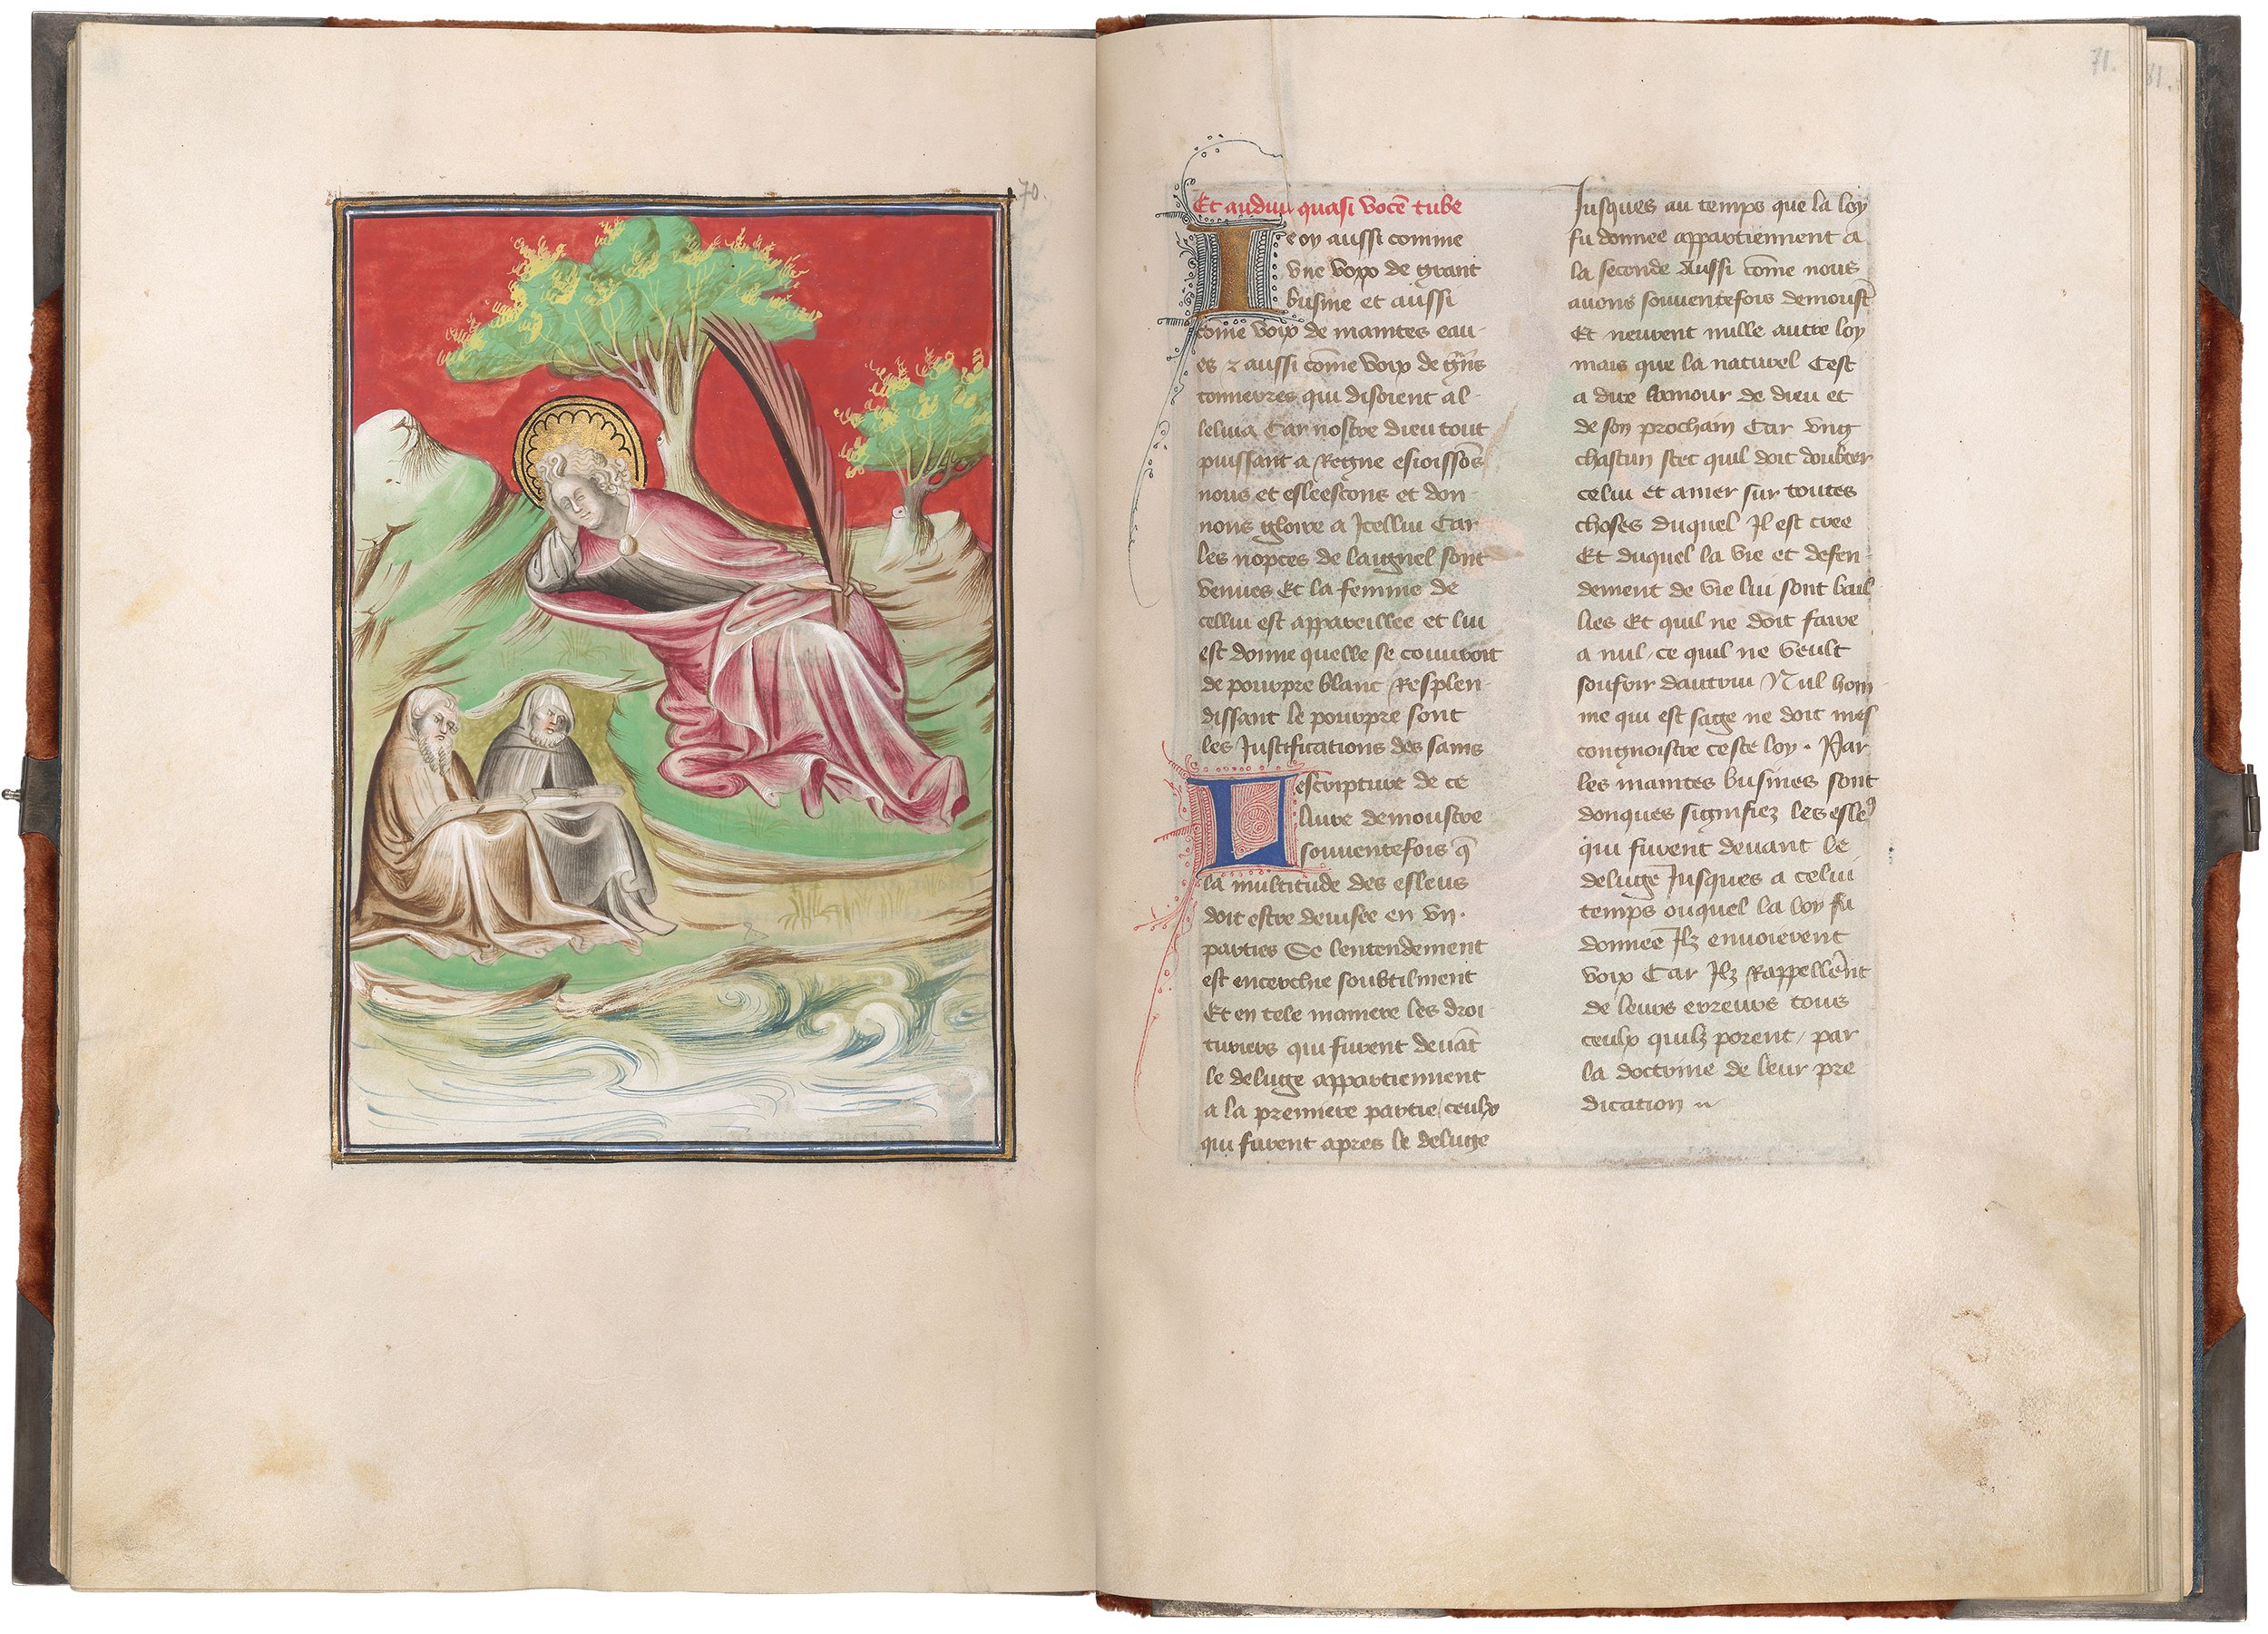 70.
71.
81.
Et audiui quasi vocē tube
Ie oy aussi comme
vne voix de grant
busine et aussi
cōme voix de maintes eau-
es ⁊ aussi cōme voix de grñs
tonnevres qui disoient al-
leluia Car nostre dieu tout
puissant a Regne esioissōs
nous et esleescons et don-
nons gloire a Icellui Car
les nopces de laignel sont
venues Et la femme de
cellui est appareillee et lui
est donne quelle se couuroit
de pourpre blanc Resplen-
dissant le pourpre sont
les Justifications des sains
Lescripture de ce
liure demoustre
souuentefois q̄
la multitude des esleus
doit estre deuisee en vij.
parties Se lentendement
est encerchie soubtilment
Et en tele maniere les droi-
turiers qui furent deuāt
le deluge appartiennent
a la premiere partie/ceulx
qui furent apres le deluge
Jusques au temps que la loy
fu donnee appartiennent a
la seconde Aussi cōme nous
auons souuentefois demoust̄
Et neurent nulle autre loy
mais que la naturel Cest
a dire lamour de dieu et
de son prochain Car vng
chascun scet quil doit doubter
celui et amer sur toutes
choses duquel Il est cree
Et duquel la vie et defen-
dement de vie lui sont bail-
lies Et quil ne doit faire
a nul/ce quil ne veult
soufrir dautrui Nul hom-
me qui est sage ne doit mes
congnoistre ceste loy. Par
les maintes busines sont
donques signifiez les esleꝰ
qui furent deuant le
deluge Jusques a celui
temps ouquel la loy fu
donnee Ilz enuoierent
voix Car Ilz Rappellerēt
de leurs erreurs tous
ceulx quilz porent/par
la doctrine de leur pre-
dication